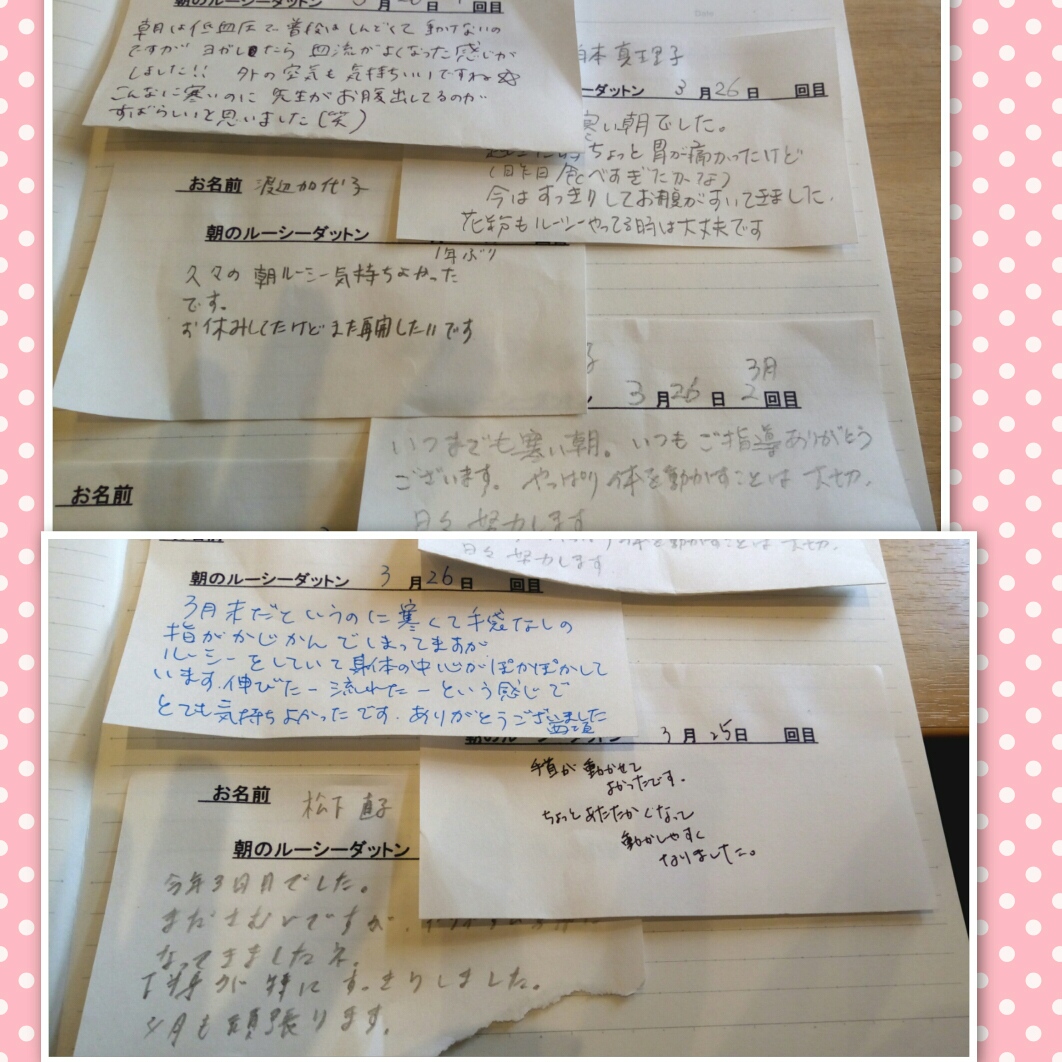 朝のルーシーダットン 3月26日 回目
朝は低血圧で普段はしんどくて動けないの
ですがヨガしたら血流がよくなった感じが
しました!! 外の空気も気持ちいいですね☆
こんなに寒いのに先生がお腹出してるのが
すばらしいと思いました(笑)
真理子
ーダットン 3月26日 回目
寒い朝でした。
ちょっと胃が痛かったけど
(昨日食べすぎたかな)
今はすっきりしてお腹がすいてきました.
花粉もルーシーやってる時は大丈夫です
お名前 渡辺加代子
朝のルーシーダットン
1年ぶり
久々の朝ルーシー気持ちよかった
です。
お休みしてたけどまた再開したいです
3月
3月26日 2回目
いつまでも寒い朝。いつもご指導ありがとう
ございます。やっぱり体を動かすことは大切.
日々努力します
お名前
体を動かすことは大切.
日々努力します
朝のルーシーダットン 3月26日 回目
3月末だというのに寒くて手袋なしの
指がかじかんでしまってますが
ルーシーをしていて身体の中心がぽかぽかして
います.伸びたー流れたーという感じで
とても気持ちよかったです.ありがとうございました
朝のルーシーダットン 3月25日 回目
手首が動かせて
よかったです.
ちょっとあたたかくなって
動かしやすく
なりました。
お名前 松下直子
朝のルーシーダットン
今年3回目でした。
まださむいですが、
なってきましたネ.
特にすっきりしました。
4月も頑張ります.